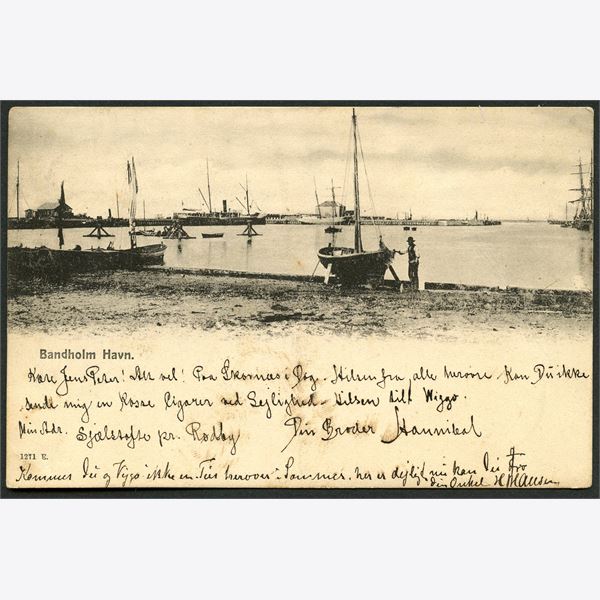 Bandholm Havn.
Kære Jens Peter! Alt vel! Paa Skovnæs i Dag. Hilsen fra alle herovre Kan Du ikke
sende mig en Kasse Cigarer ved Lejlighed. Hilsen till Wiggo.
Min Adr. Sjælstofte pr. Rødby Din Broder Hannibal
1271 E.
Kommer Du og Viggo ikke en Tur herover i Sommer, her er dejligt nu kan Du tro
din Onkel